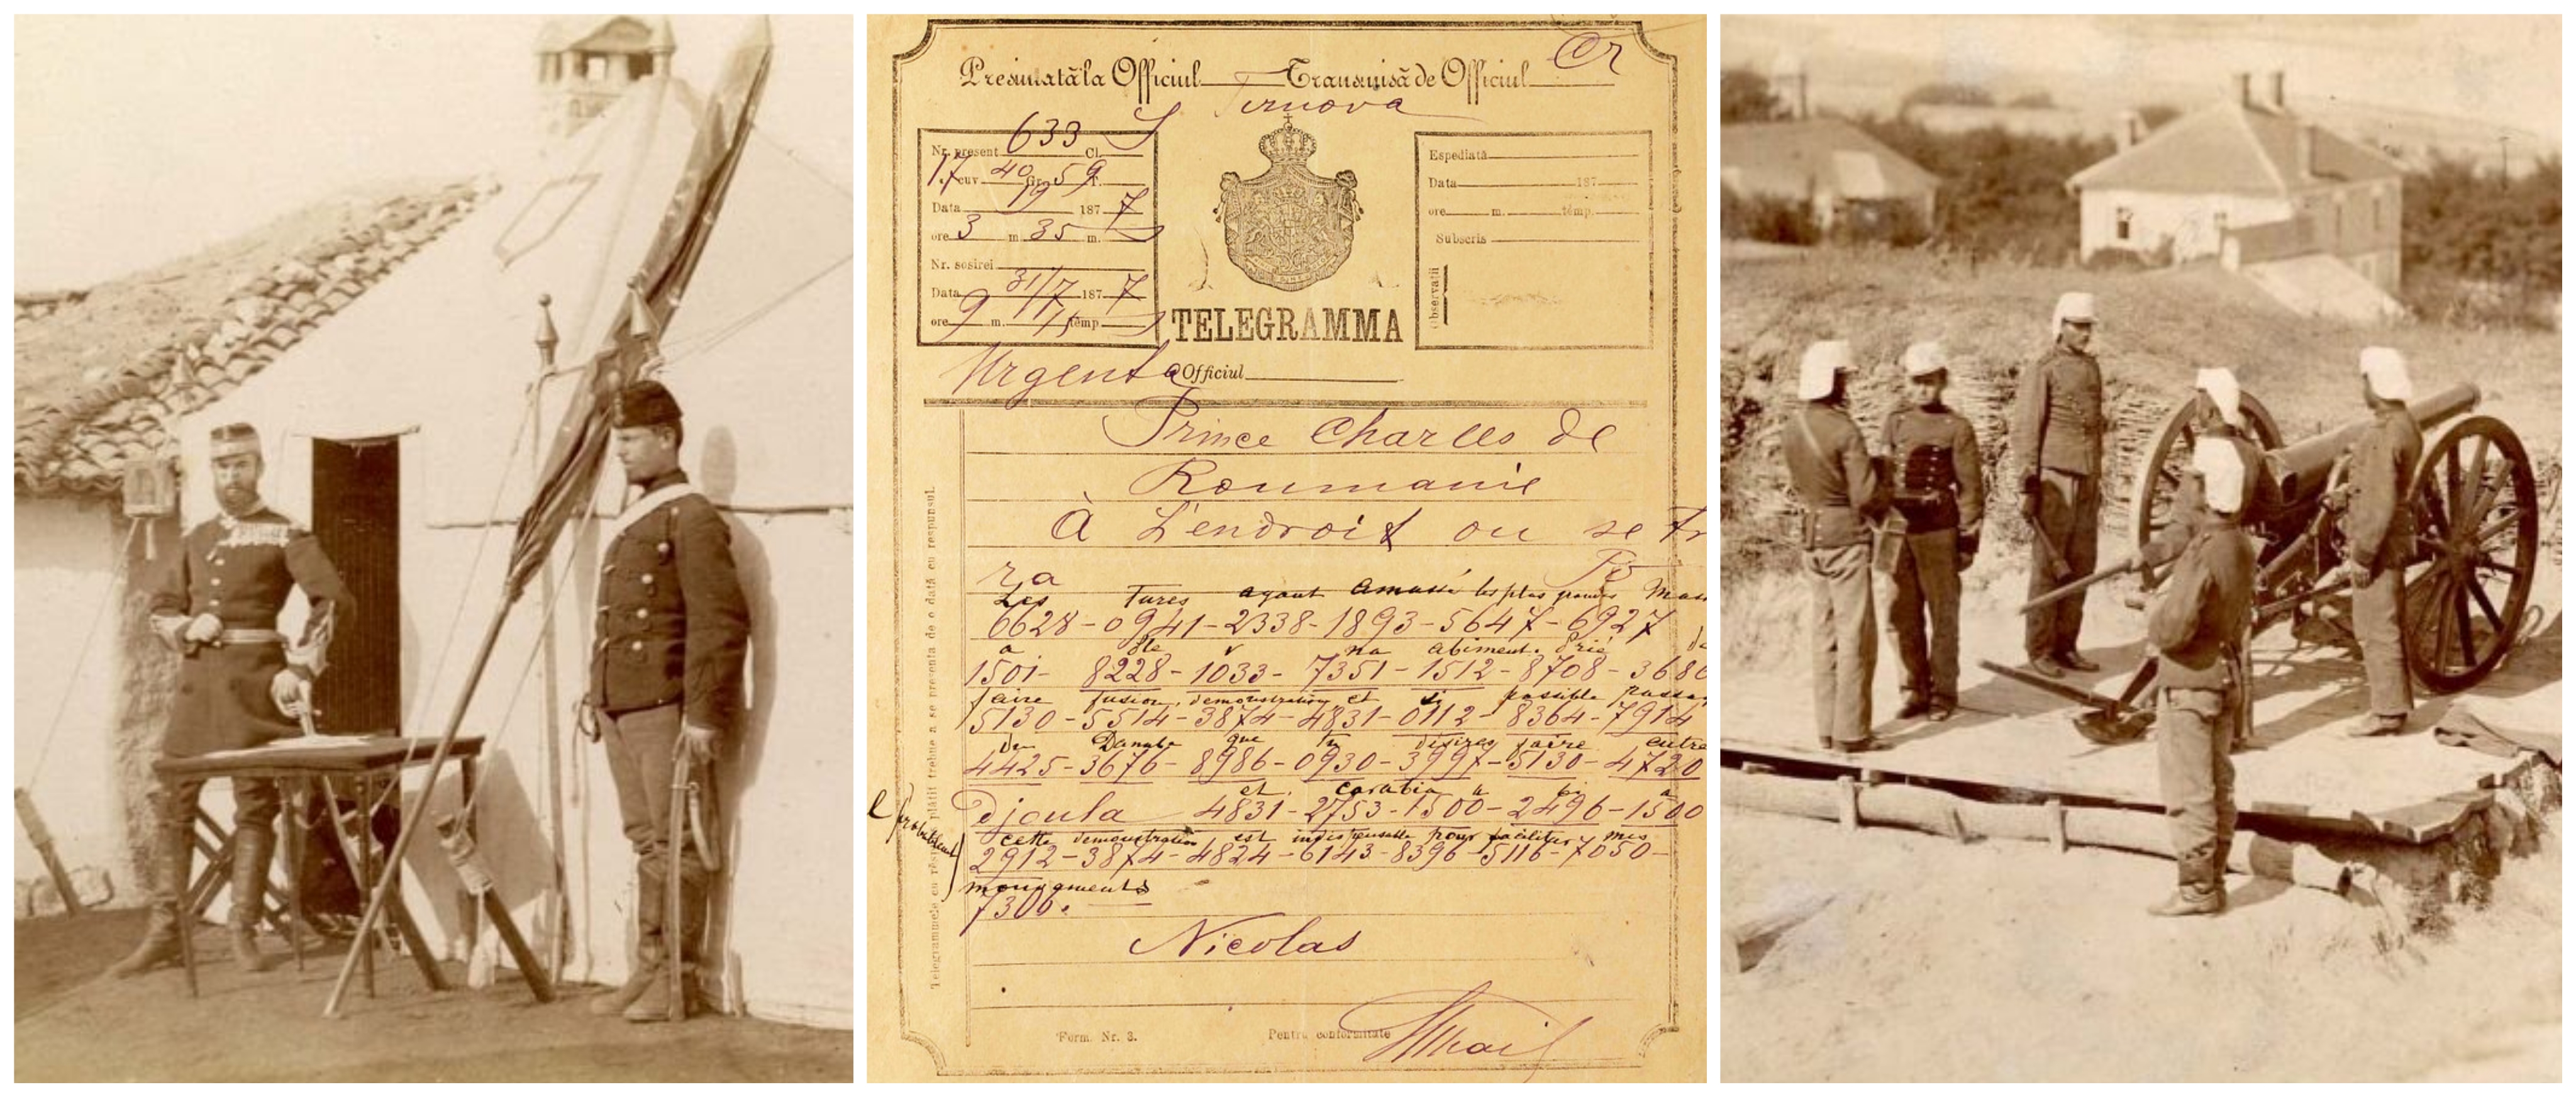 Cr
Presintată la Officiul Transmisă de Officiul
Tirnova
633
Nr. present Cl.
17 cuv 40 Gr. 59 T.
Data 19 187 7
ore 3 m. 35 m.
Nr. sosirei
Data 31/7 187 7
ore 9 m. tēmp
Espediată
Data 187
ore m. tēmp.
Subscris
Observații
TELEGRAMMA
Urgenta Officiul
Prince Charles de
Roumanie
à L'endroit ou se tr
ra
Les Turcs ayant amassé les plus grandes mass
6628-0941-2338-1893-5647-6927
a Ple v na abiment. Prié de
1501-8228-1033-7351-1512-8708-3680
faire fusion, demonstration et si possible passag
5130-5514-3874-4831-0112-8364-7914
du Danube que tu désires faire entre
4425-3676-8986-0930-3997-5130-4720
et Corabia a bi a
Djoula 4831-2753-1500-2496-1500
cette demonstration est indispensable pour faciliter mes
2912-3874-4824-6143-8396-5116-7050-
mouvements
7306.
Nicolas
Form. Nr. 3.
Pentru conformitate
Mhail
Telegrammele cu răspuns plătit trebue a se presenta de o dată cu respunsul.